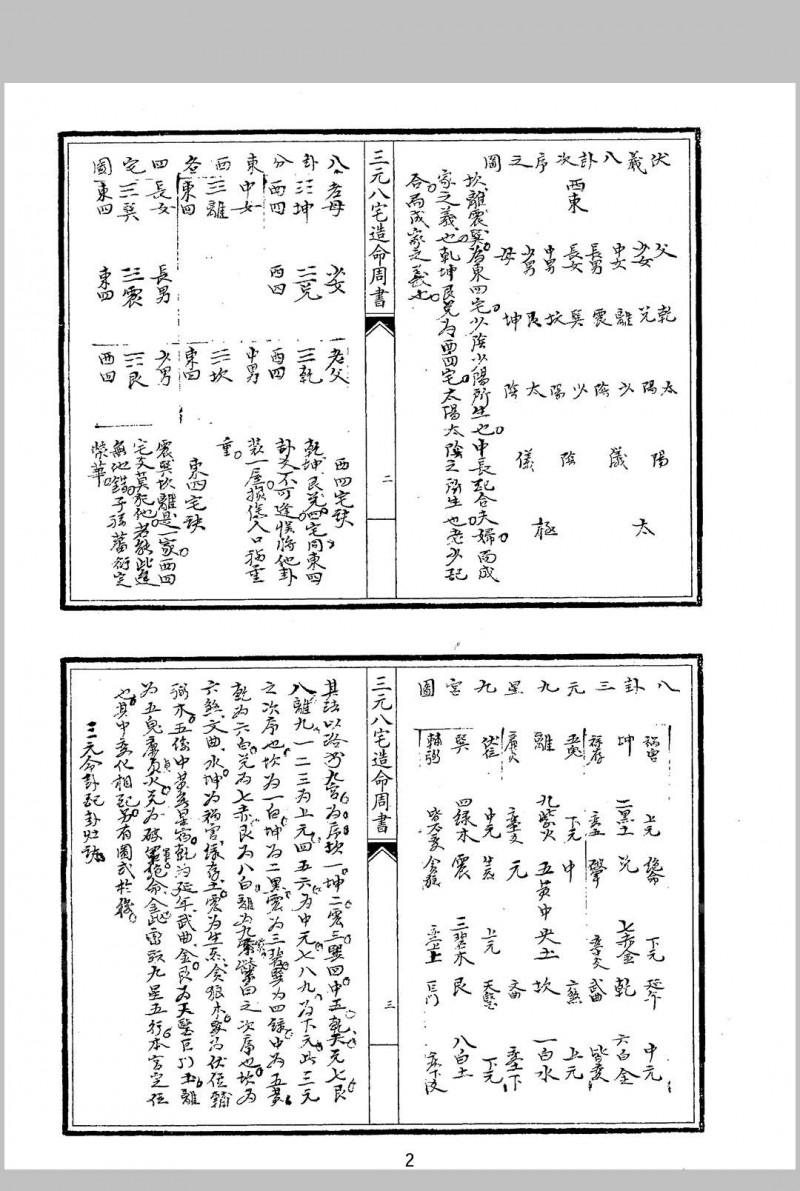 伏羲八卦次序之圖
西東
父 少女 中女 長男 長女 中男 少男 母
乾 兌 離 震 巽 坎 艮 坤
太陽 少陰 少陽 太陰
陽儀 陰儀
太極
坎離震巽為東四宅少陰少陽所生也中長配合夫婦而成
家之義也乾坤艮兌為西四宅太陽太陰之所生也老少配
合而成家之義也
三元八宅造命周書
二
八卦分東西各四宅圖
老母 少女 老父
坤 兌 乾
西四 西四 西四
中女 中男
離 坎
東四 東四
長女 長男 少男
巽 震 艮
東四 東四 西四
西四宅訣
乾坤艮兌四宅同東四
卦爻不可逢悮將他卦
裝一屋損傷人口禍重
重
東四宅訣
震巽坎離是一家西四
宅爻莫犯他若能此造
無他錯子孫蕃衍定
榮華
八卦三元九星九宮圖
坤 二黑土 上元
兌 七赤金 下元
乾 六白金 中元
離 九紫火 下元
中元 五黃中央土
坎 一白水 上元
巽 四綠木 中元
震 三碧木 上元
艮 八白土 下元
禍害 祿存 絕命 延年 武曲
五鬼 廉火 六煞 文曲
伏位 輔弼 生氣 貪狼 天醫 巨門
三元八宅造命周書
三
其法以洛書九宮為序坎一坤二震三巽四中五乾六兌七艮
八離九一二三為上元四五六為中元七八九為下元此三元
之次序也坎為一白坤為二黑震為三碧巽為四綠中為五黃
乾為六白兌為七赤艮為八白離為九紫 之次序也坎為
六煞文曲水坤為禍害祿存土震為生氣貪狼木巽為伏位輔
弼木五係中黃 星寄乾為延年武曲金艮為天醫巨門土離
為五鬼廉貞火兌為破軍絕命金此 九星五行本宮定位
也其中变化相配另有圖式於後
三元命卦配卦灶訣
2